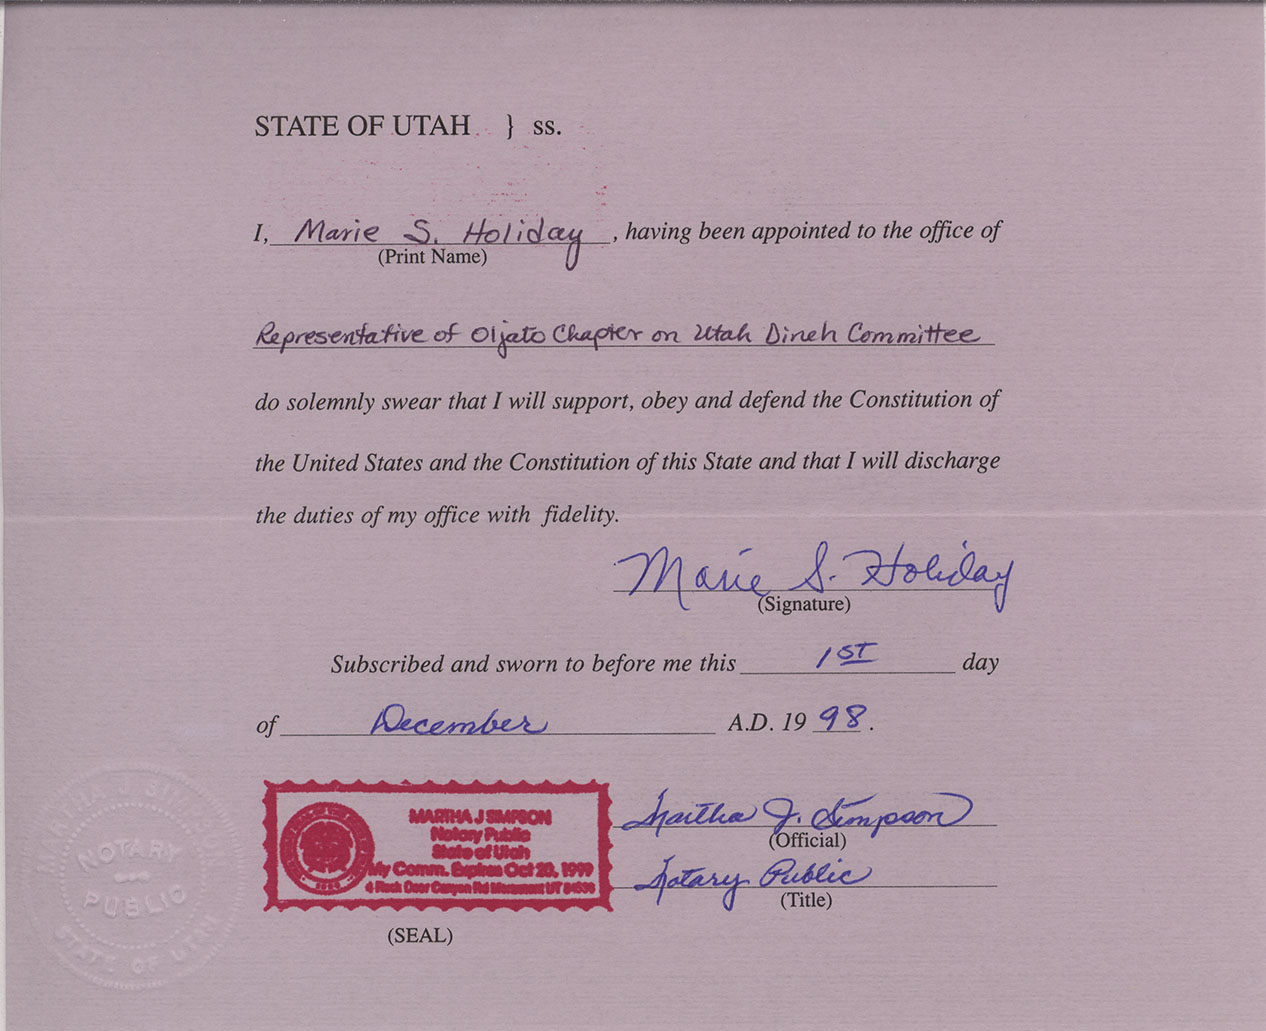 STATE OF UTAH } ss.
I, Marie S. Holiday, having been appointed to the office of
(Print Name)
Representative of Oljato Chapter on Utah Dineh Committee
do solemnly swear that I will support, obey and defend the Constitution of
the United States and the Constitution of this State and that I will discharge
the duties of my office with fidelity.
Marie S. Holiday
(Signature)
Subscribed and sworn to before me this 1ST day
of December A.D. 19 98.
MARTHA J SIMPSON
Notary Public
State of Utah
My Comm. Expires Oct 20, 1999
4 Rock Door Canyon Rd Monument UT 84536
Martha J. Simpson
(Official)
Notary Public
(Title)
(SEAL)
MARTHA J SIM
NOTARY
PUBLIC
STATE OF UTAH